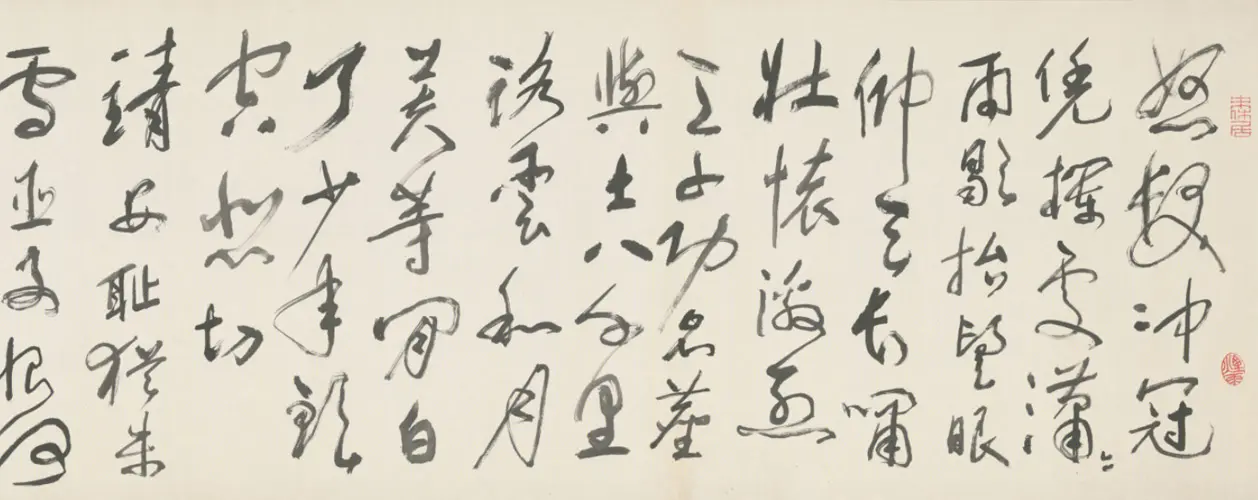 怒发冲冠
凭欄處瀟々
雨歇抬望眼
仰天长嘯
壮懷激烈
三十功名塵
與土八千里
路雲和月
莫等闲白
了少年頭
空悲切
靖康耻猶未
雪臣子恨何